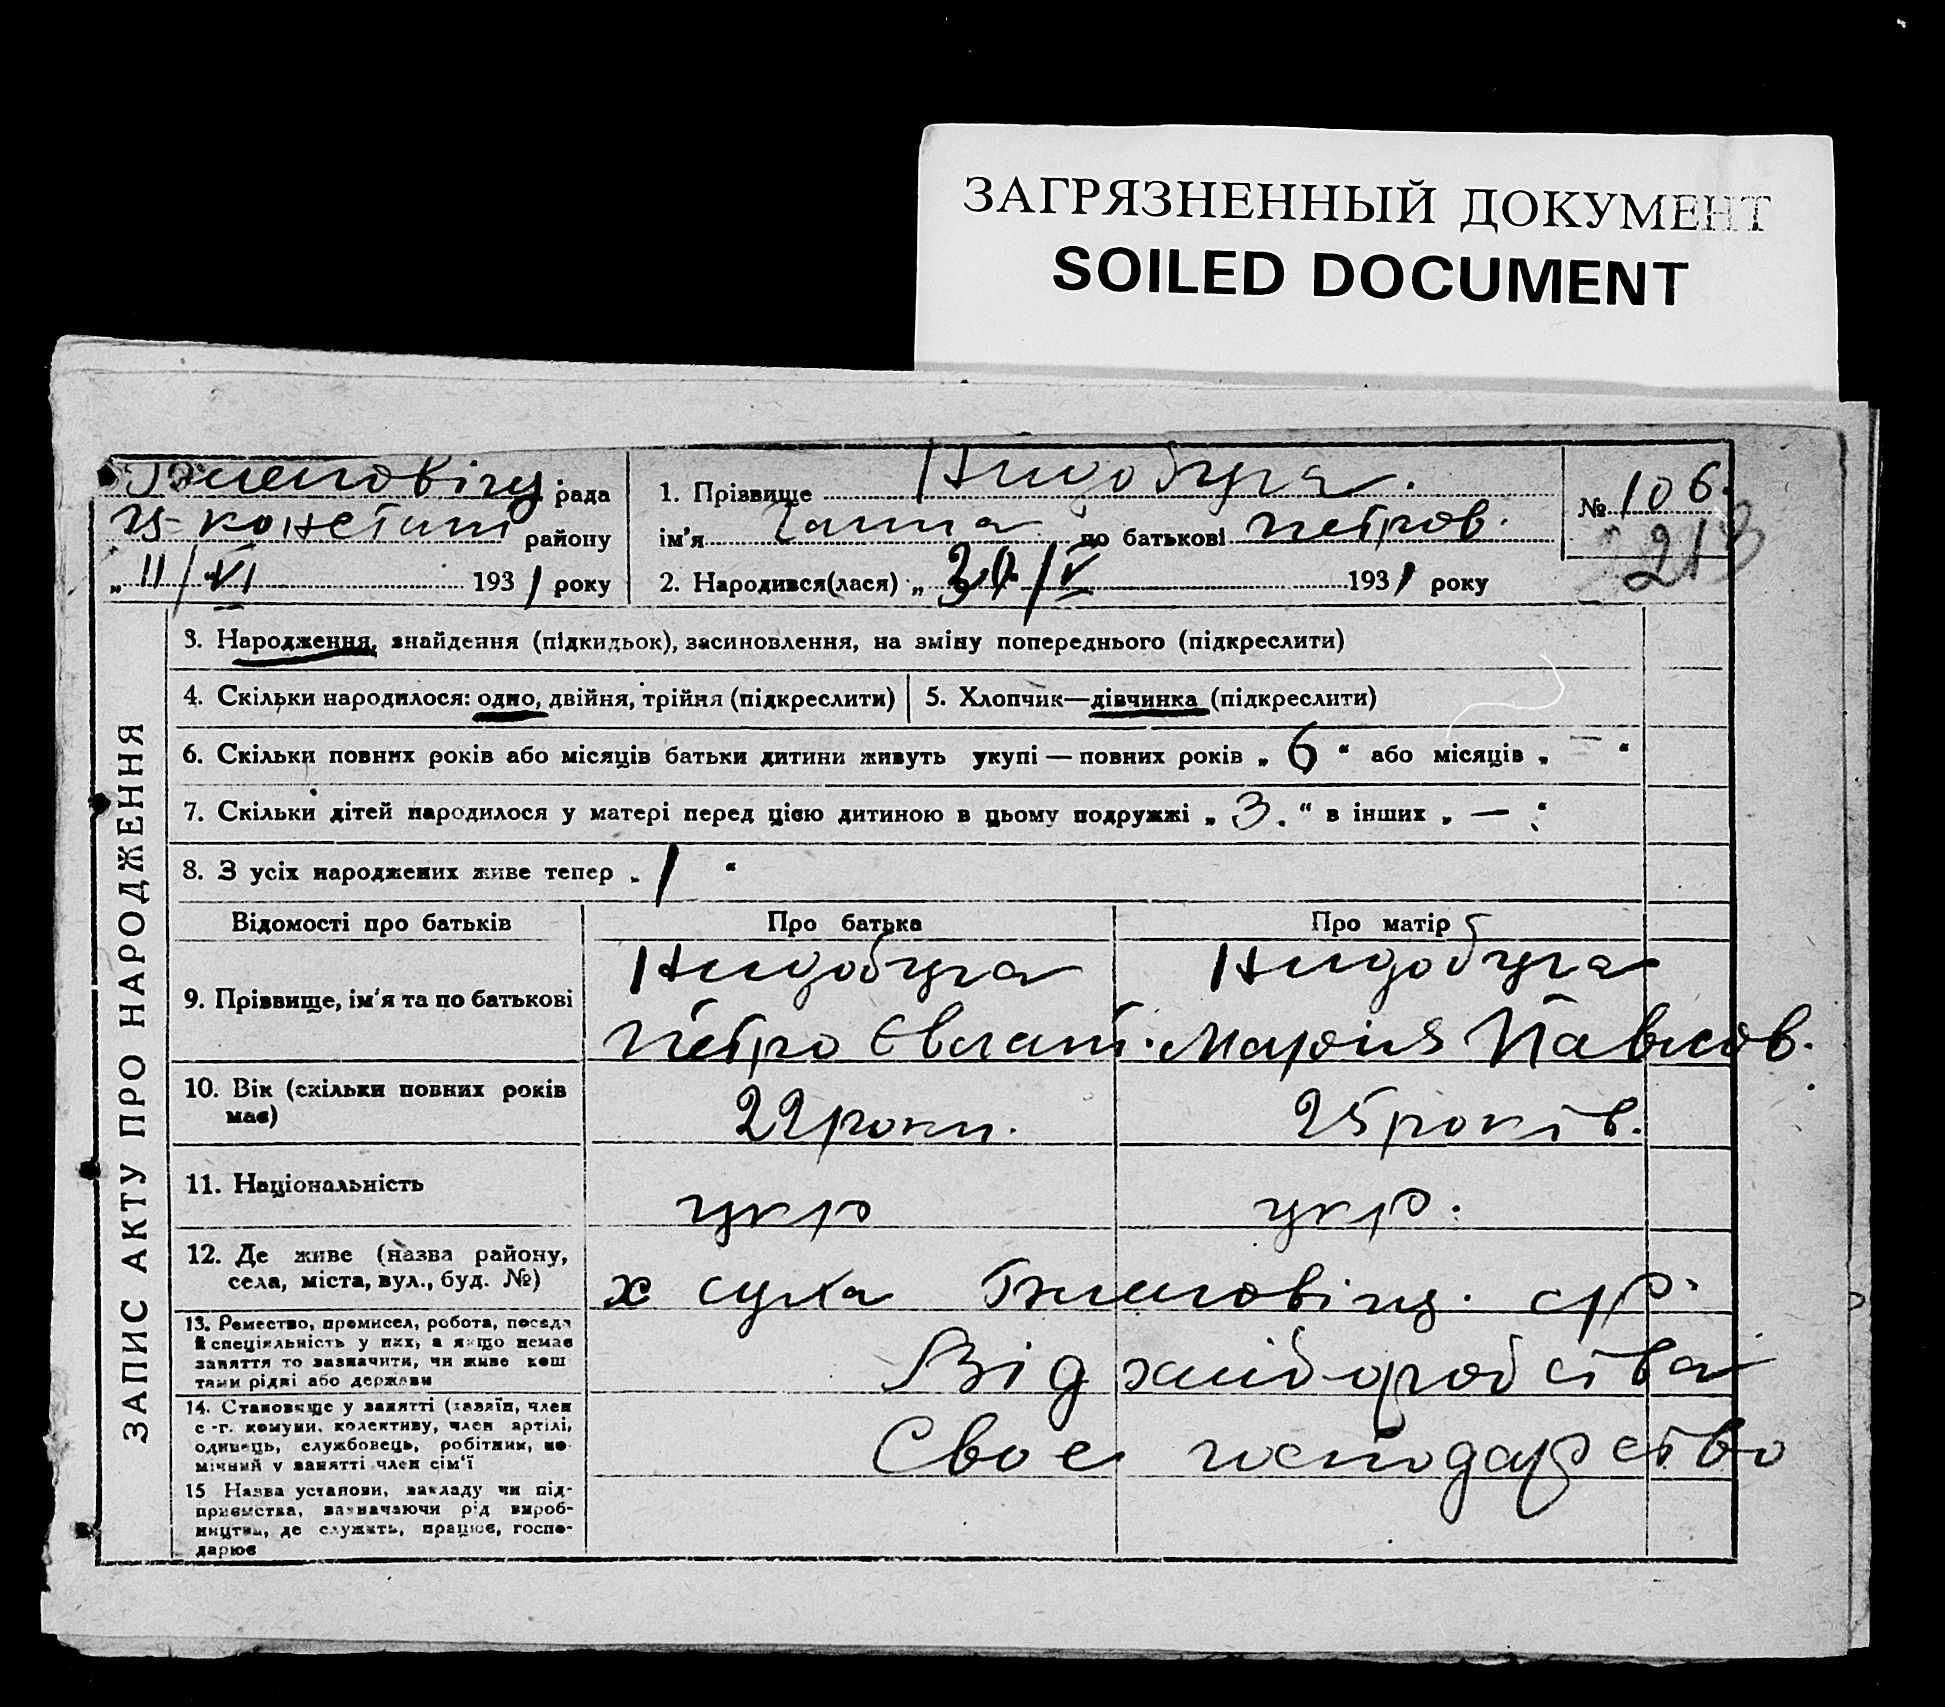 ЗАГРЯЗНЕННЫЙ ДОКУМЕНТ
SOILED DOCUMENT
рада
району
„ 11/VI 1931 року
1. Прізвище
ім'я Ганна по батькові Петров.
2. Народився(лася) „ 30/V 1931 року
№ 106.
213
ЗАПИС АКТУ ПРО НАРОДЖЕННЯ
3. Народження, знайдення (підкидьок), засиновлення, на зміну попереднього (підкреслити)
4. Скільки народилося: одно, двійня, трійня (підкреслити)
5. Хлопчик—дівчинка (підкреслити)
6. Скільки повних років або місяців батьки дитини живуть укупі — повних років „ 6 “ або місяців „ — “
7. Скільки дітей народилося у матері перед цією дитиною в цьому подружжі „ 3. “ в інших „ — “
8. З усіх народжених живе тепер „ 1 “
Відомості про батьків
Про батька
Про матір
9. Прізвище, ім'я та по батькові
Петро Євлант.
Марфія Павлов.
10. Вік (скільки повних років
має)
22 роки.
25 років.
11. Національність
укр
укр.
12. Де живе (назва району,
села, міста, вул., буд. №)
х суха с/р.
13. Ремество, промисел, робота, посада
й спеціяльність у них, а якщо немає
заняття то зазначити, чи живе кош
тами рідні або держави
Від хліборобства
14. Становище у занятті (хазяїн, член
с-г. комуни, колективу, член артілі,
одинець, службовець, робітник, по-
мічний у занятті член сім'ї
Своє господарство
15 Назва установи, закладу чи під-
приємства, зазначаючи рід вироб-
ництва, де служить, працює, госпо-
дарює